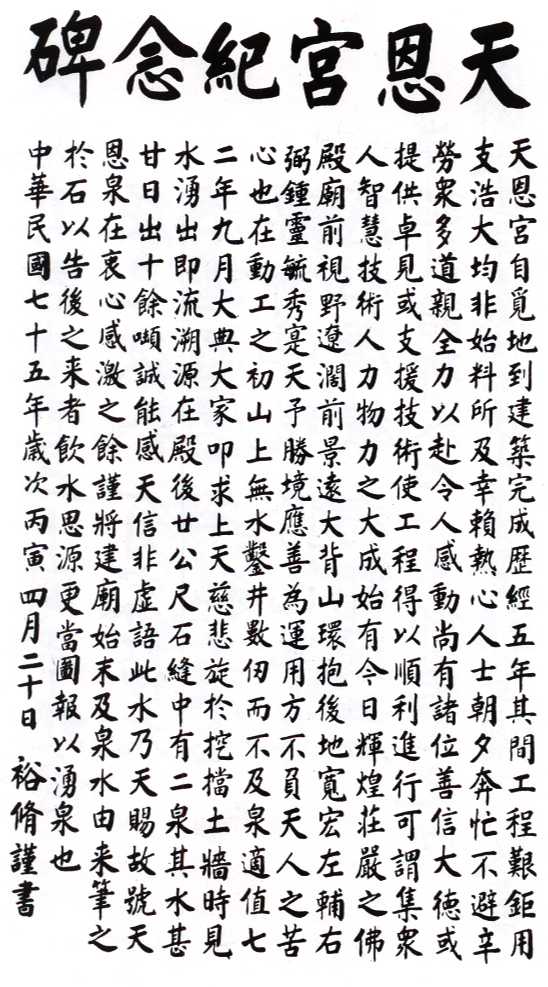 天恩宮紀念碑
天恩宮自覓地到建築完成歷經五年其間工程艱鉅用
支浩大均非始料所及幸賴熱心人士朝夕奔忙不避辛
勞眾多道親全力以赴令人感動尚有諸位善信大德或
提供卓見或支援技術使工程得以順利進行可謂集眾
人智慧技術人力物力之大成始有今日輝煌莊嚴之佛
殿廟前視野遼濶前景遠大背山環抱後地寬宏左輔右
弼鍾靈毓秀寔天予勝境應善為運用方不負天人之苦
心也在動工之初山上無水鑿井數仞而不及泉適值七
二年九月大典大家叩求上天慈悲旋於挖擋土牆時見
水湧出即流溯源在殿後廿公尺石縫中有二泉其水甚
甘日出十餘噸誠能感天信非虛語此水乃天賜故號天
恩泉在衷心感激之餘謹將建廟始末及泉水由來筆之
於石以告後之来者飲水思源更當圖報以湧泉也
中華民國七十五年歲次丙寅四月二十日 裕脩謹書